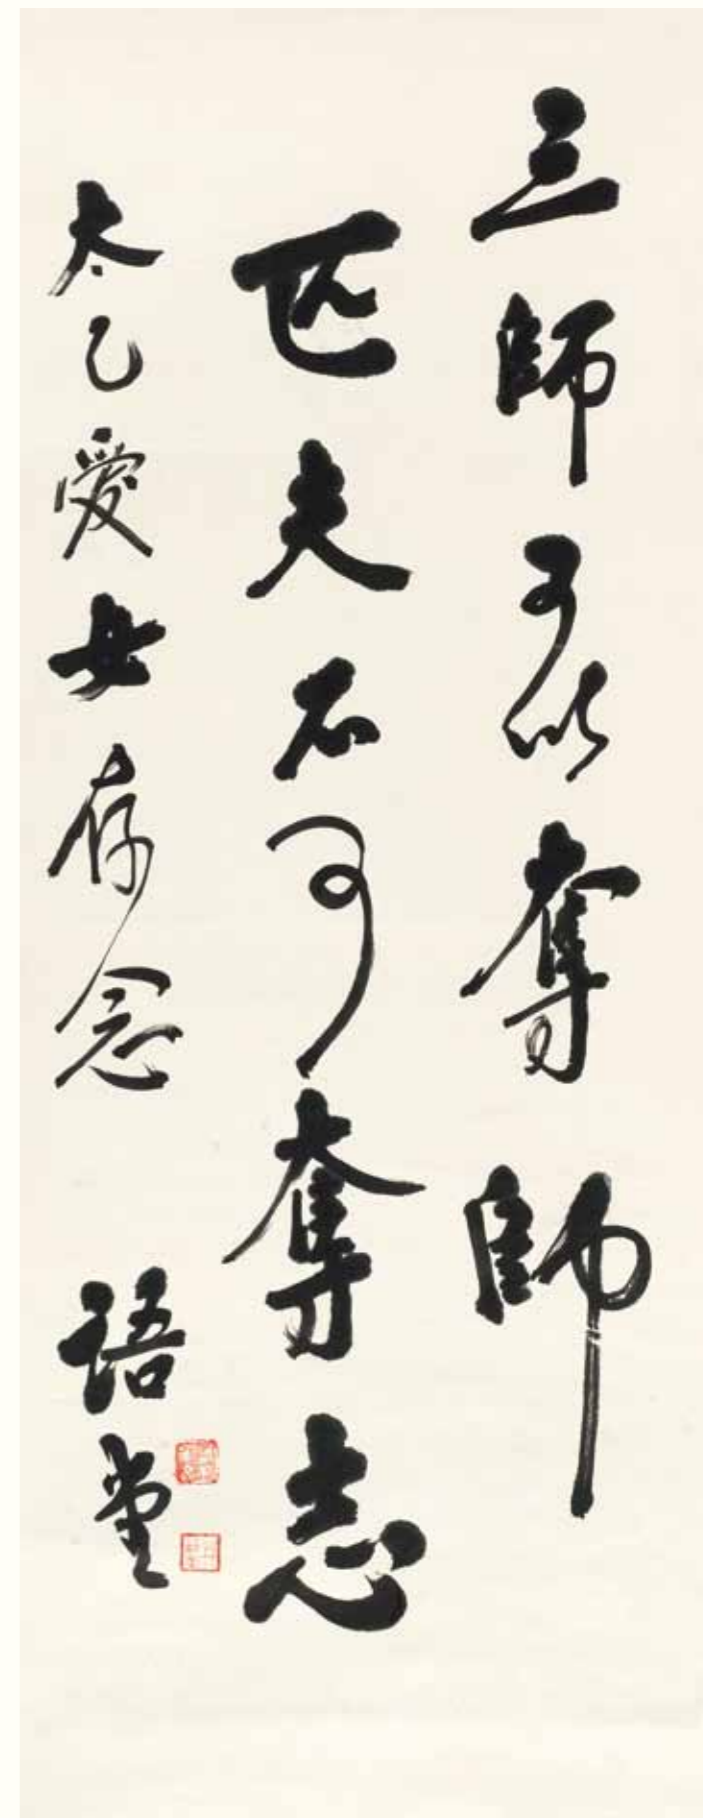 三師可以奪帥
匹夫不可奪志
太乙愛女存念 語堂